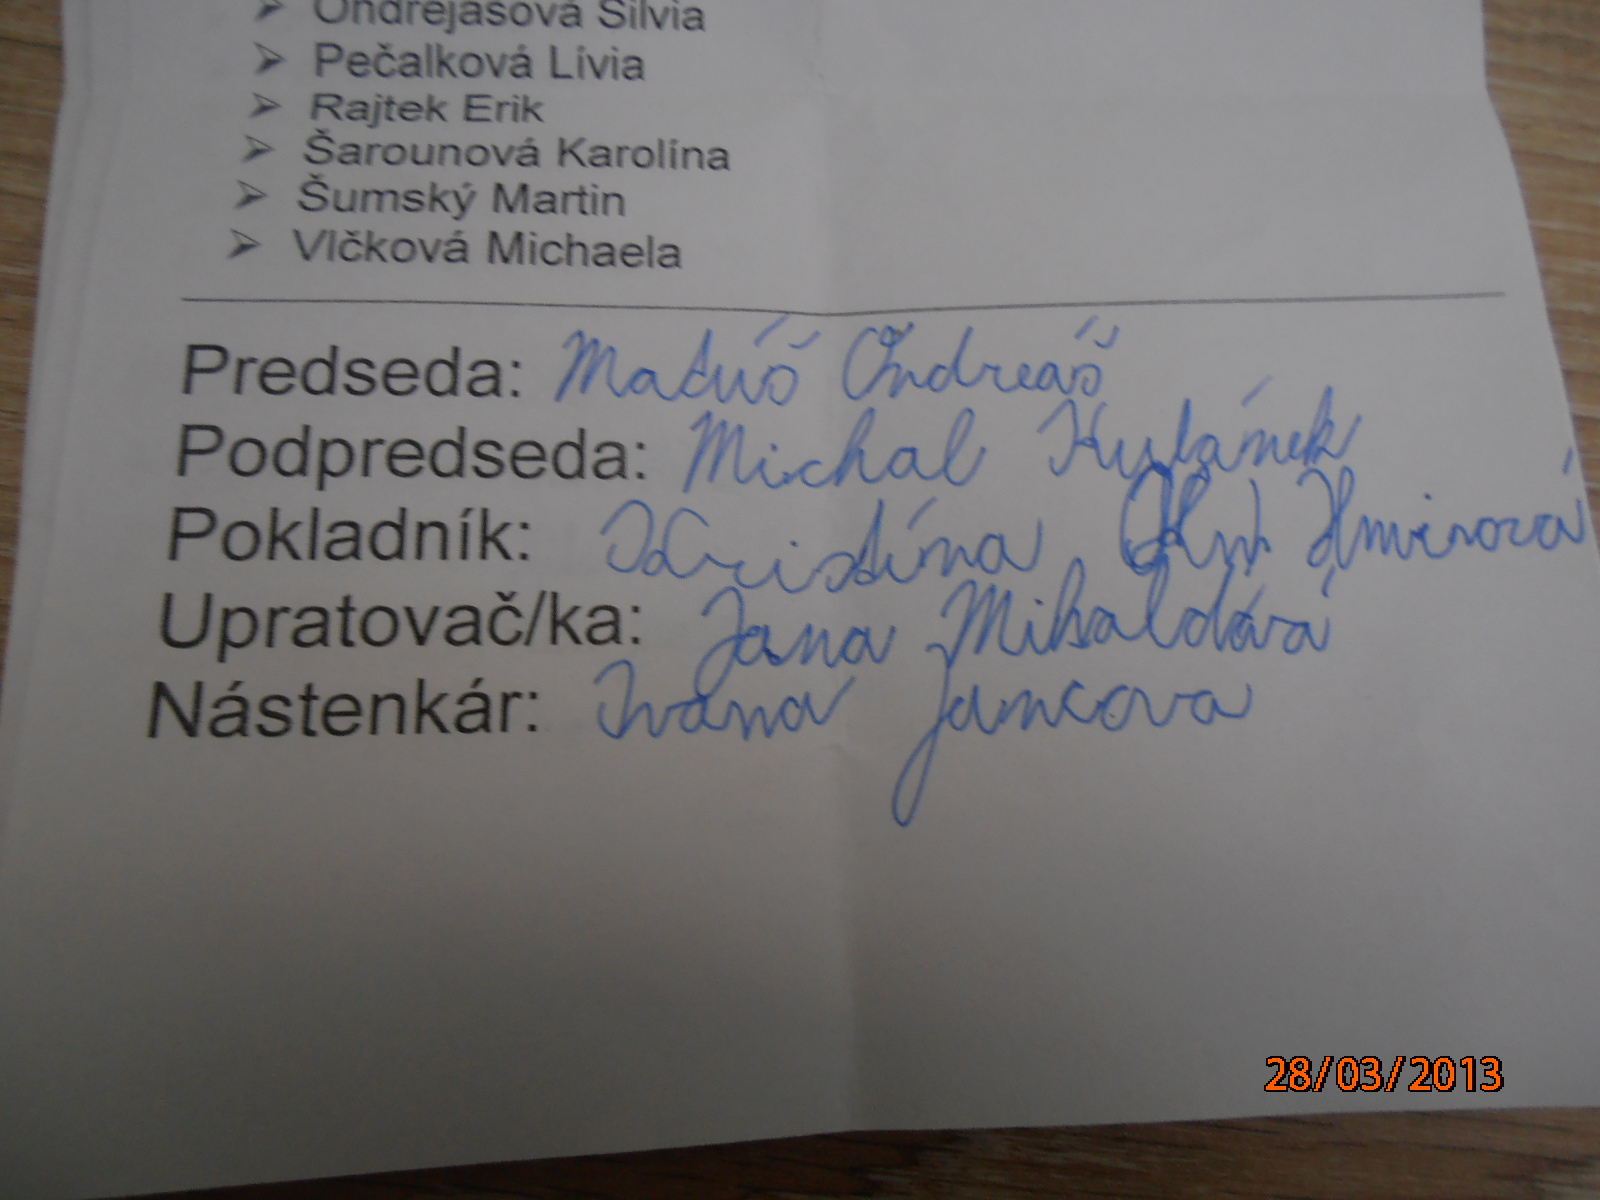 Ondrejašová Silvia
Pečalková Lívia
Rajtek Erik
Šarounová Karolína
Šumský Martin
Vlčková Michaela
Predseda: Matúš Ondreáš
Podpredseda: Michal
Pokladník: Kristína
Upratovač/ka: Jana
Nástenkár: Ivana Jancova
28/03/2013